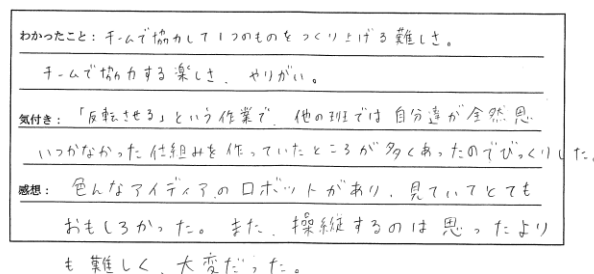 わかったこと：チームで協力して1つのものをつくり上げる難しさ。
チームで協力する楽しさ、やりがい。
気付き：「反転させる」という作業で、他の班では自分達が全然思
いつかなかった仕組みを作っていたところが多くあったのでびっくりした。
感想：色んなアイディアのロボットがあり、見ていてとても
おもしろかった。また、操縦するのは思ったより
も難しく、大変だった。